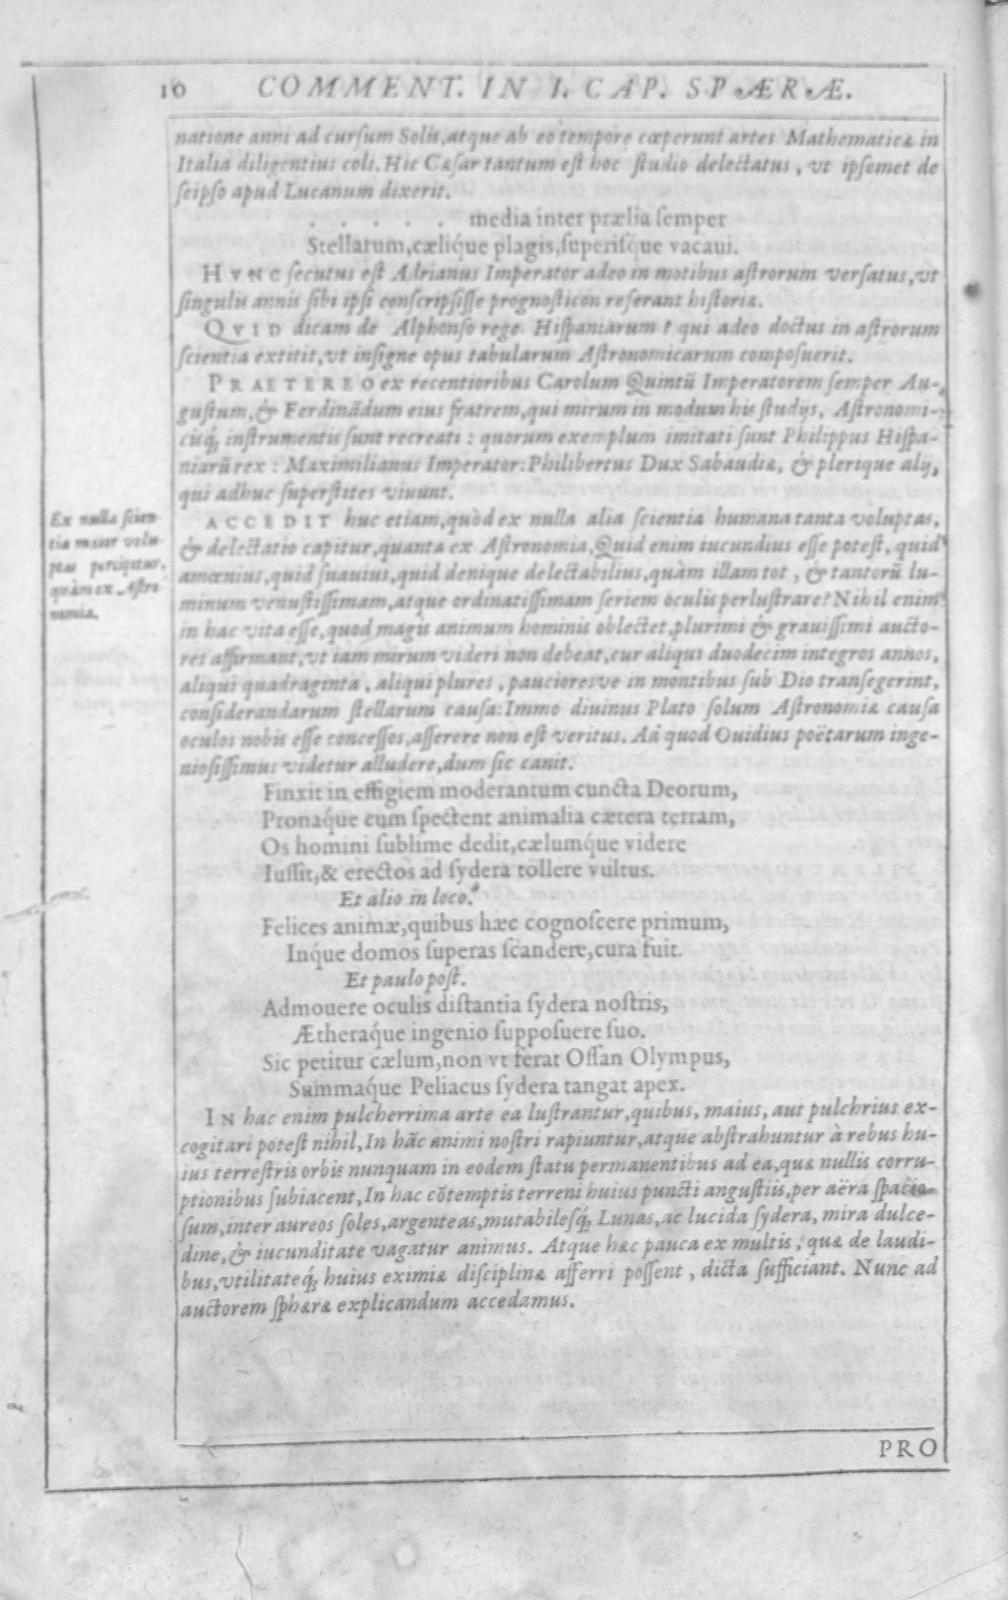 10 COMMENT. IN I. CAP. SPÆRÆ.
natione anni ad cursum Solis, atque ab eo tempore cœperunt artes Mathematicæ in
Italia diligentius coli. Hic Cæsar tantum est hoc studio delectatus, vt ipsemet de
seipso apud Lucanum dixerit.
. . . . . media inter prælia semper
Stellarum, cæliq́ue plagis, superisq́ue vacaui.
HVNC secutus est Adrianus Imperator adeo in motibus astrorum versatus, vt
singulis annis sibi ipsi conscripsisse prognosticon referant historiæ.
QVID dicam de Alphonso rege Hispaniarum? qui adeo doctus in astrorum
scientia extitit, vt insigne opus tabularum Astronomicarum composuerit.
PRAETEREO ex recentioribus Carolum Quintũ Imperatorem semper Au-
gustum, & Ferdinãdum eius fratrem, qui mirum in modum his studijs, Astronomi-
cisq́; instrumentis sunt recreati: quorum exemplum imitati sunt Philippus Hispa-
niarũ rex: Maximilianus Imperator: Philibertus Dux Sabaudiæ, & plerique alij,
qui adhuc superstites viuunt.
Ex nulla scien-
tia maior volu-
ptas percipitur,
quàm ex Astro
nomia.
ACCEDIT huc etiam, quòd ex nulla alia scientia humana tanta voluptas,
& delectatio capitur, quanta ex Astronomia, Quid enim iucundius esse potest, quid
amœnius, quid suauius, quid denique delectabilius, quàm illam tot, & tantorũ lu-
minum venustissimam, atque ordinatissimam seriem oculis perlustrare? Nihil enim
in hac vita esse, quod magis animum hominis oblectet, plurimi & grauissimi aucto-
res affirmant, vt iam mirum videri non debeat, cur aliqui duodecim integros annos,
aliqui quadraginta, aliqui plures, paucioresve in montibus sub Dio transegerint,
considerandarum stellarum causa: Immo diuinus Plato solum Astronomiæ causa
oculos nobis esse concessos, asserere non est veritus. Ad quod Ouidius poëtarum inge-
niosissimus videtur alludere, dum sic canit.
Finxit in effigiem moderantum cuncta Deorum,
Pronaq́ue cum spectent animalia cætera terram,
Os homini sublime dedit, cælumq́ue videre
Iussit, & erectos ad sydera tollere vultus.
Et alio in loco.
Felices animæ, quibus hæc cognoscere primum,
Inq́ue domos superas scandere, cura fuit.
Et paulo post.
Admouere oculis distantia sydera nostris,
Ætheraq́ue ingenio supposuere suo.
Sic petitur cælum, non vt ferat Ossan Olympus,
Summaq́ue Peliacus sydera tangat apex.
IN hac enim pulcherrima arte ea lustrantur, quibus, maius, aut pulchrius ex-
cogitari potest nihil, In hãc animi nostri rapiuntur, atque abstrahuntur à rebus hu-
ius terrestris orbis nunquam in eodem statu permanentibus ad ea, quæ nullis corru-
ptionibus subiacent, In hac cõtemptis terreni huius puncti angustiis, per aëra spatio-
sum, inter aureos soles, argenteas, mutabilesq́; Lunas, ac lucida sydera, mira dulce-
dine, & iucunditate vagatur animus. Atque hæc pauca ex multis, quæ de laudi-
bus, vtilitateq́; huius eximiæ disciplinæ afferri possent, dicta sufficiant. Nunc ad
auctorem sphæræ explicandum accedamus.
PRO